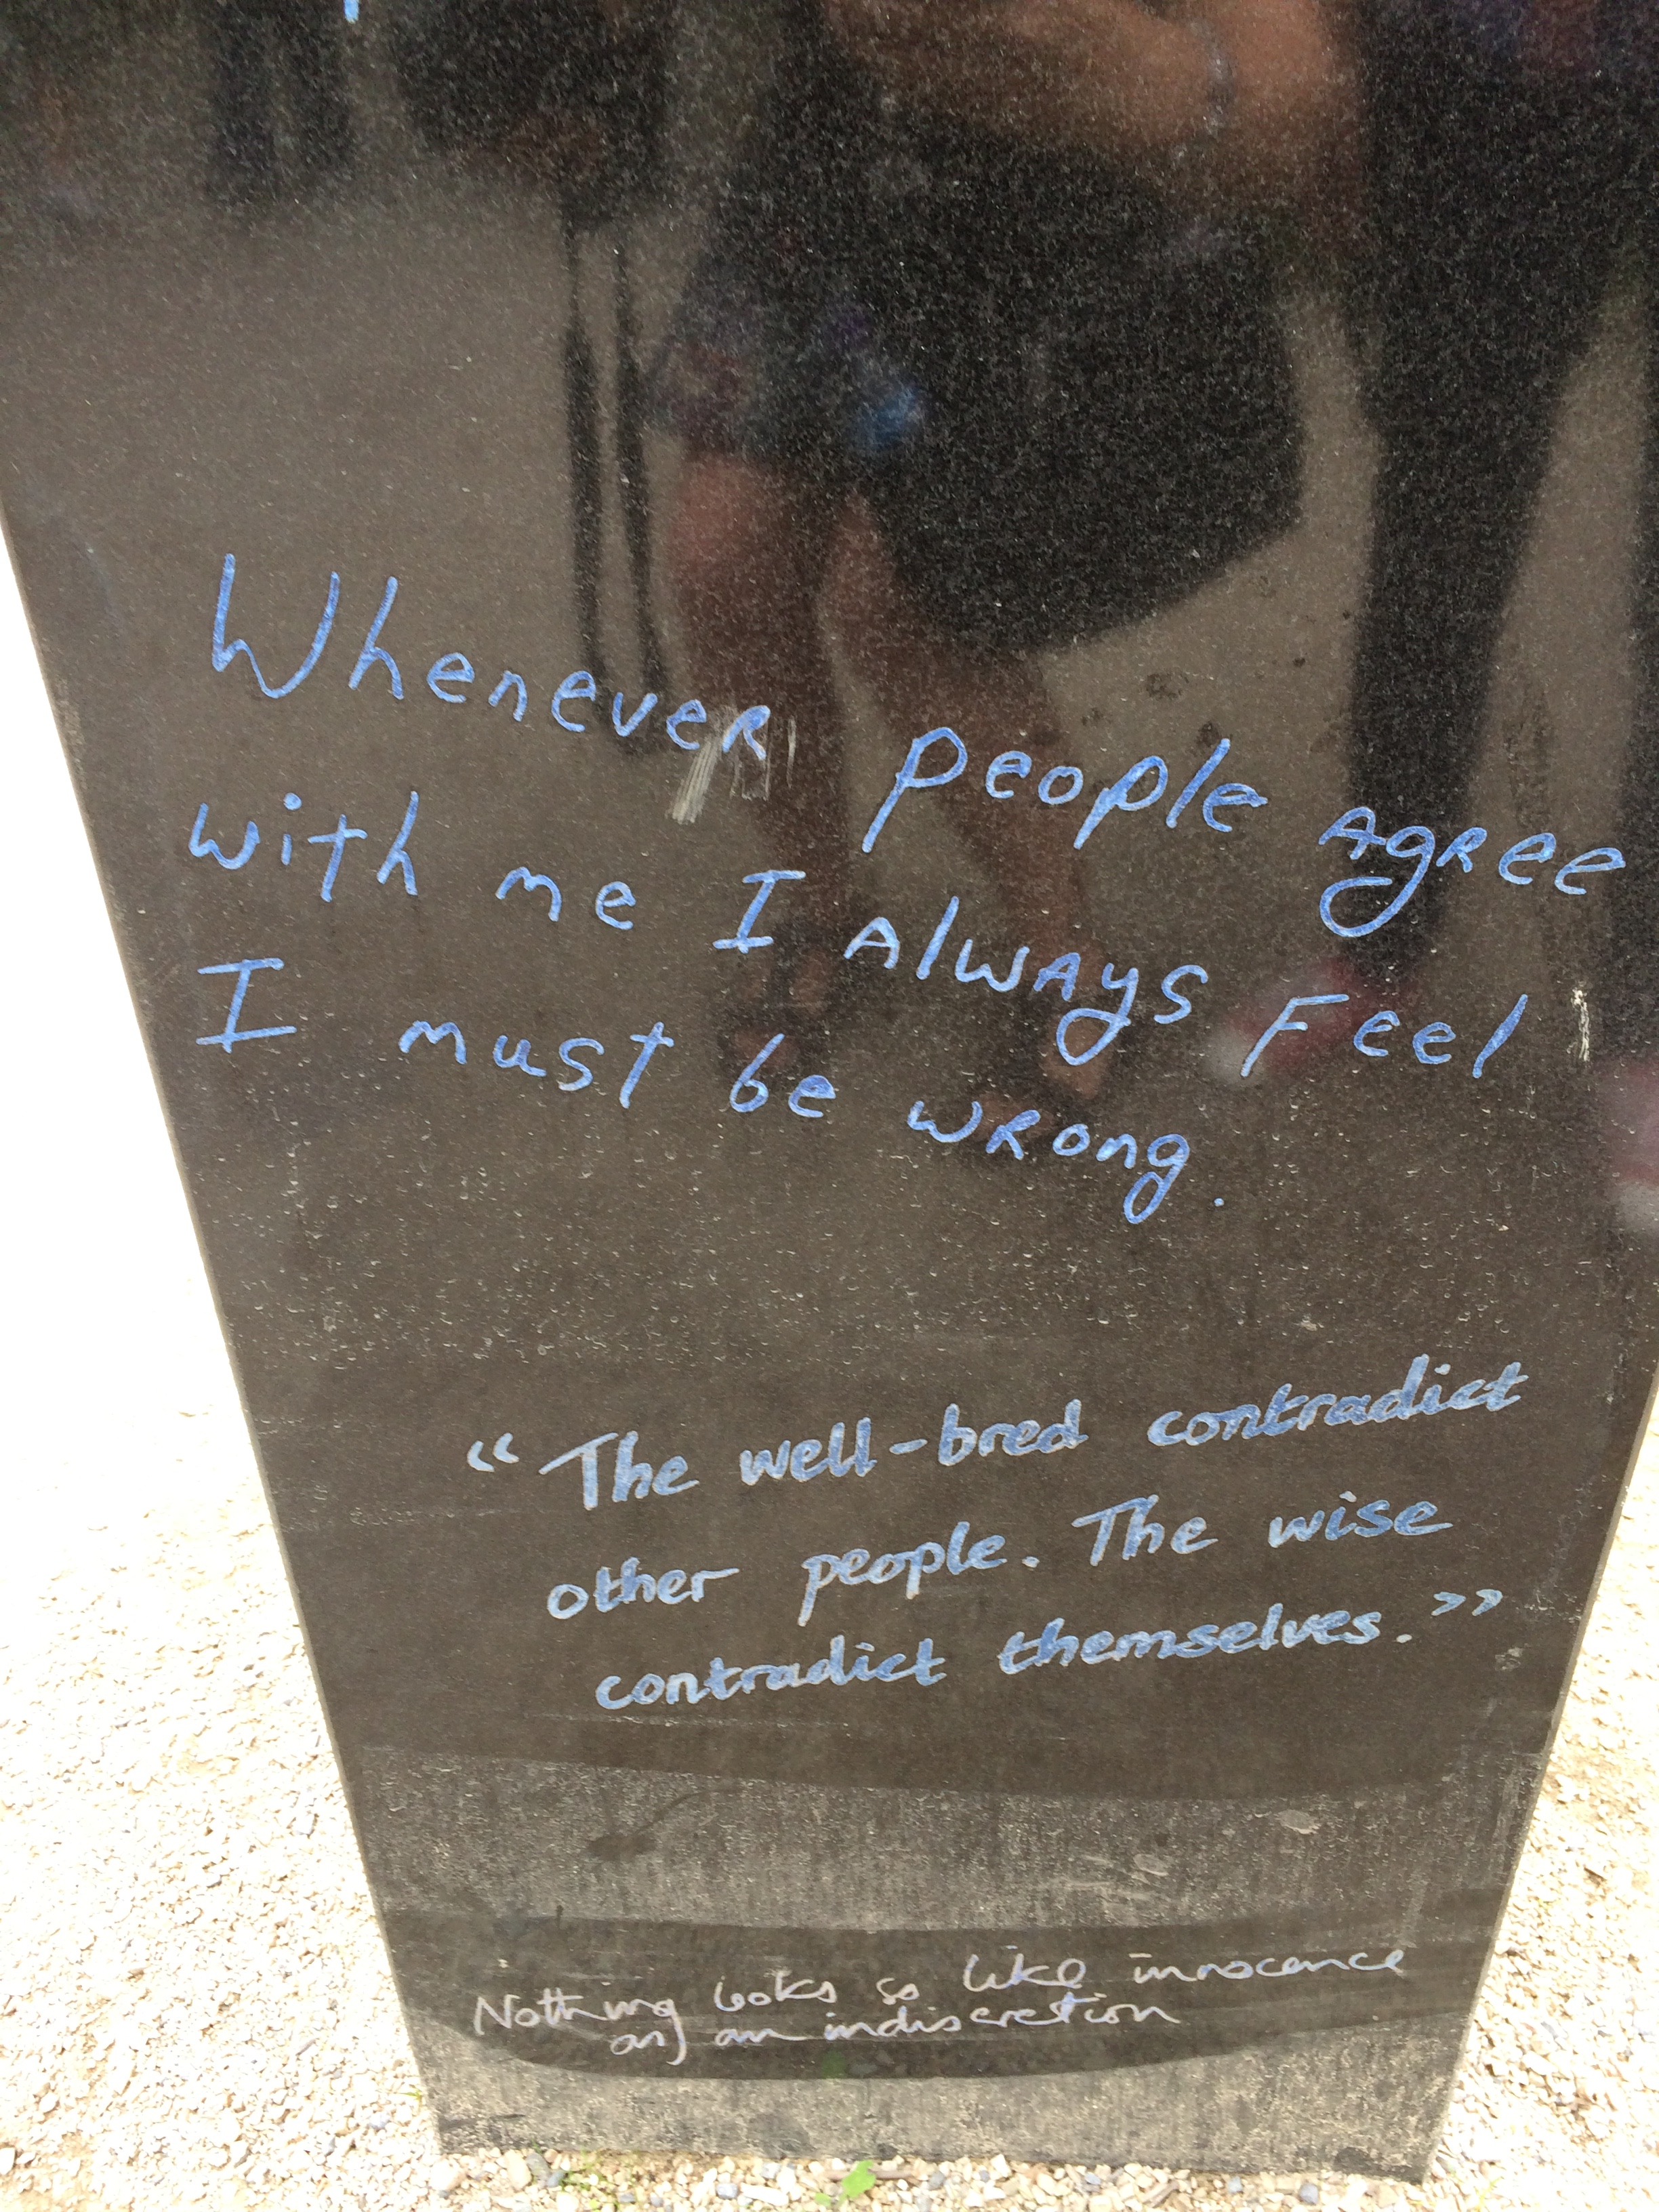 Whenever people agree
with me I always feel
I must be wrong.
“The well-bred contradict
other people. The wise
contradict themselves.”
Nothing looks so like innocence
as an indiscretion